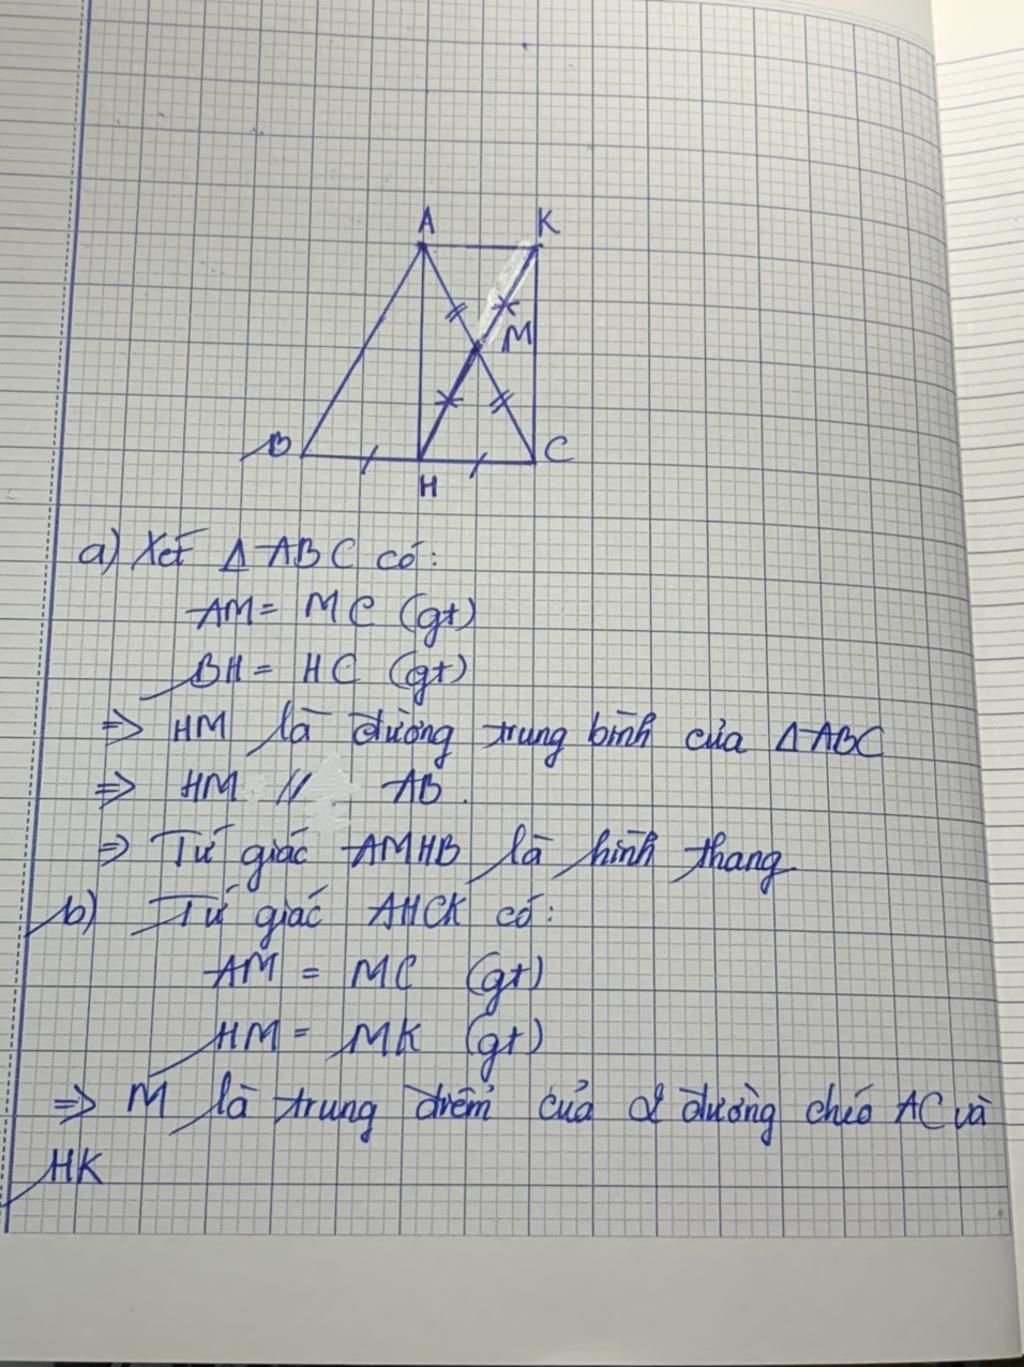 A K
M
B C
H
a) Xét Δ ABC có:
AM = MC (gt)
BH = HC (gt)
=> HM là đường trung bình của Δ ABC
=> HM // AB.
=> Tứ giác AMHB là hình thang
b) Tứ giác AHCK có:
AM = MC (gt)
HM = MK (gt)
=> M là trung điểm của 2 đường chéo AC và
HK